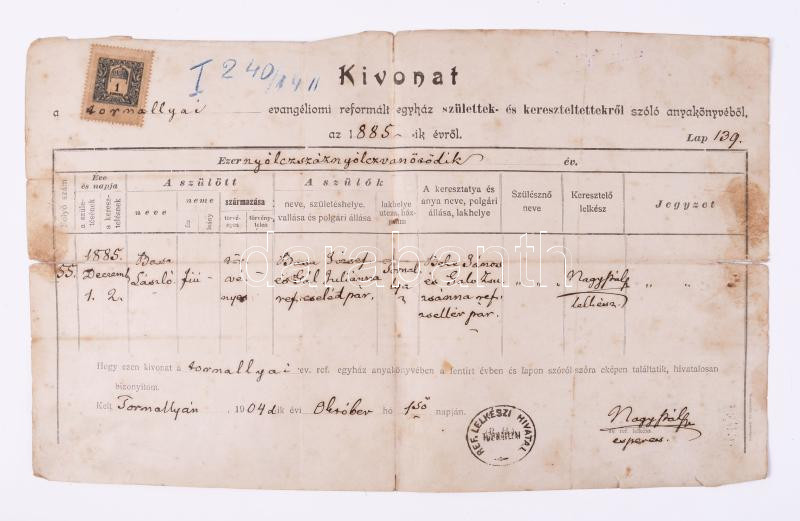 I 240/1411
1
Kivonat
a tornallyai evangéliomi reformált egyház születtek- és kereszteltettekről szóló anyakönyvéből,
az 1885-ik évről. Lap 139.
Ezernyólczszáznyólczvanöródik év.
Folyó szám
Éve és napja
a születésének
a keresztelésnek
A szülött
neve
neme
fiú
leány
származása
törvényes
törvénytelen
A szülők
neve, születéshelye, vallása és polgári állása
lakhelye utcza, házszám
A keresztatya és anya neve, polgári állása, lakhelye
Szülésznő neve
Keresztelő lelkész
Jegyzet
55.
1885. Decemb 1. 2.
László
fiú
-
törvényes
-
József és Gál Julianna ref. cseléd pár.
Tornallya
János és Zsuzsánna ref. zsellér pár.
" "
Nagy Pál lelkész.
" "
Hogy ezen kivonat a tornallyai ev. ref. egyház anyakönyvében a fentirt évben és lapon szóról szóra eképen találtatik, hivatalosan
bizonyitom.
Kelt Tornallyán 1904dik évi Október hó 1ső napján.
REF. LELKÉSZI HIVATAL
Nagy Pál
ev. ref. lelkész
esperes.
darabanth